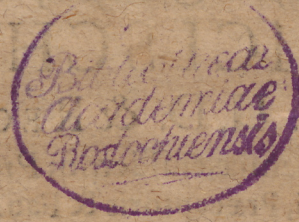 Bibliothecae
Academiae
Rostochiensis